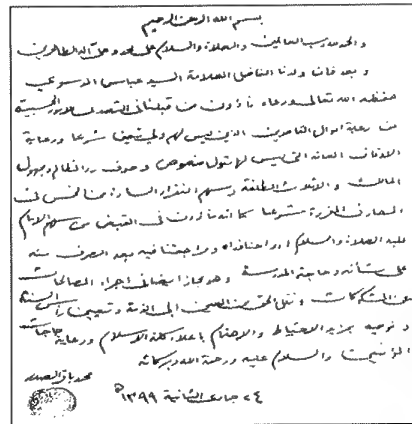 بسم الله الرحمن الرحيم
والحمد لله رب العالمين والصلاة والسلام على محمد وعلى آله الطاهرين
وبعد فان ولدنا الفاضل العلامة السيد عباس الموسوي
حفظه الله تعالى ورعاه مأذون من قبلنا في التصدي للامور الحسبية
من رعاية اموال القاصرين الذين ليس لهم ولي متعين شرعا ورعاية
الاوقاف العامة التي ليس لها متول منصوص وصرف رد المظالم ومجهول
المالك والاثلاث المطلقة وسهم الفقراء السادة من الخمس في
المصارف المقررة شرعا كما انه مأذون في القبض من سهم الامام
عليه الصلاة والسلام ارواحنا فداه ومراجعتنا فيه بعد الصرف منه
على شأنه وحاجة المدرسة وهو مجاز ايضا في اجراء المصالحات
عن المشكوكات ونقل الحق من العين الى الذمة وتعيين رأس السنة
ونوصيه بمزيد الاحتياط والاهتمام باعلاء كلمة الاسلام ورعاية حاجات
المؤمنين والسلام عليه ورحمة الله وبركاته
محمد باقر الصدر
٢٤ جمادى الثانية ١٣٩٩ ه